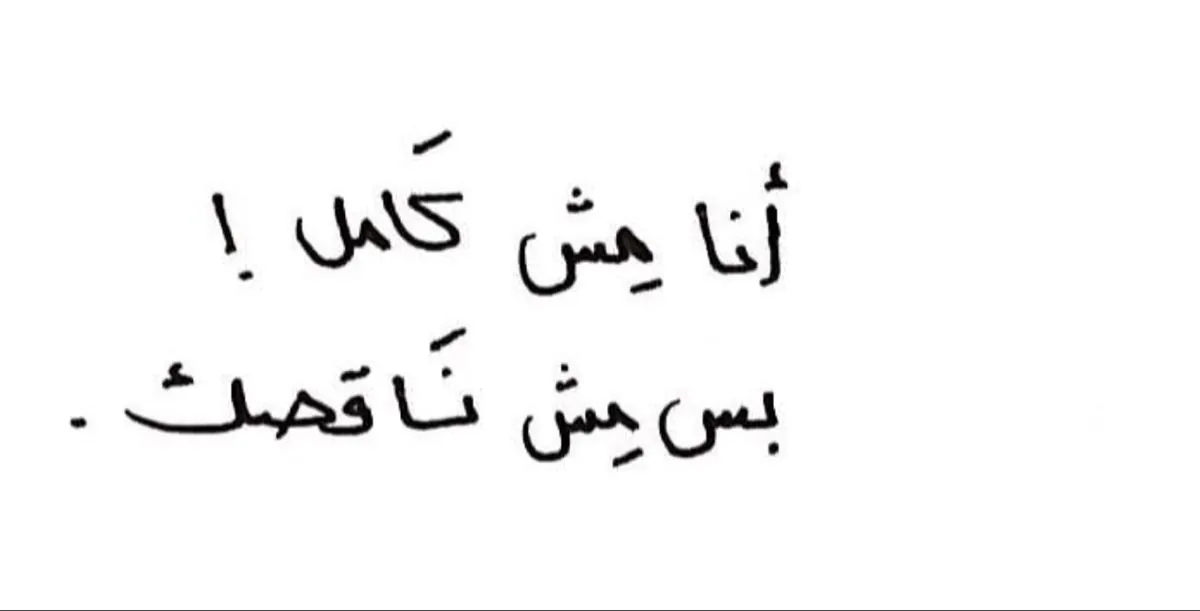 أنا مِش كَامل !
بس مِش نَاقصك .